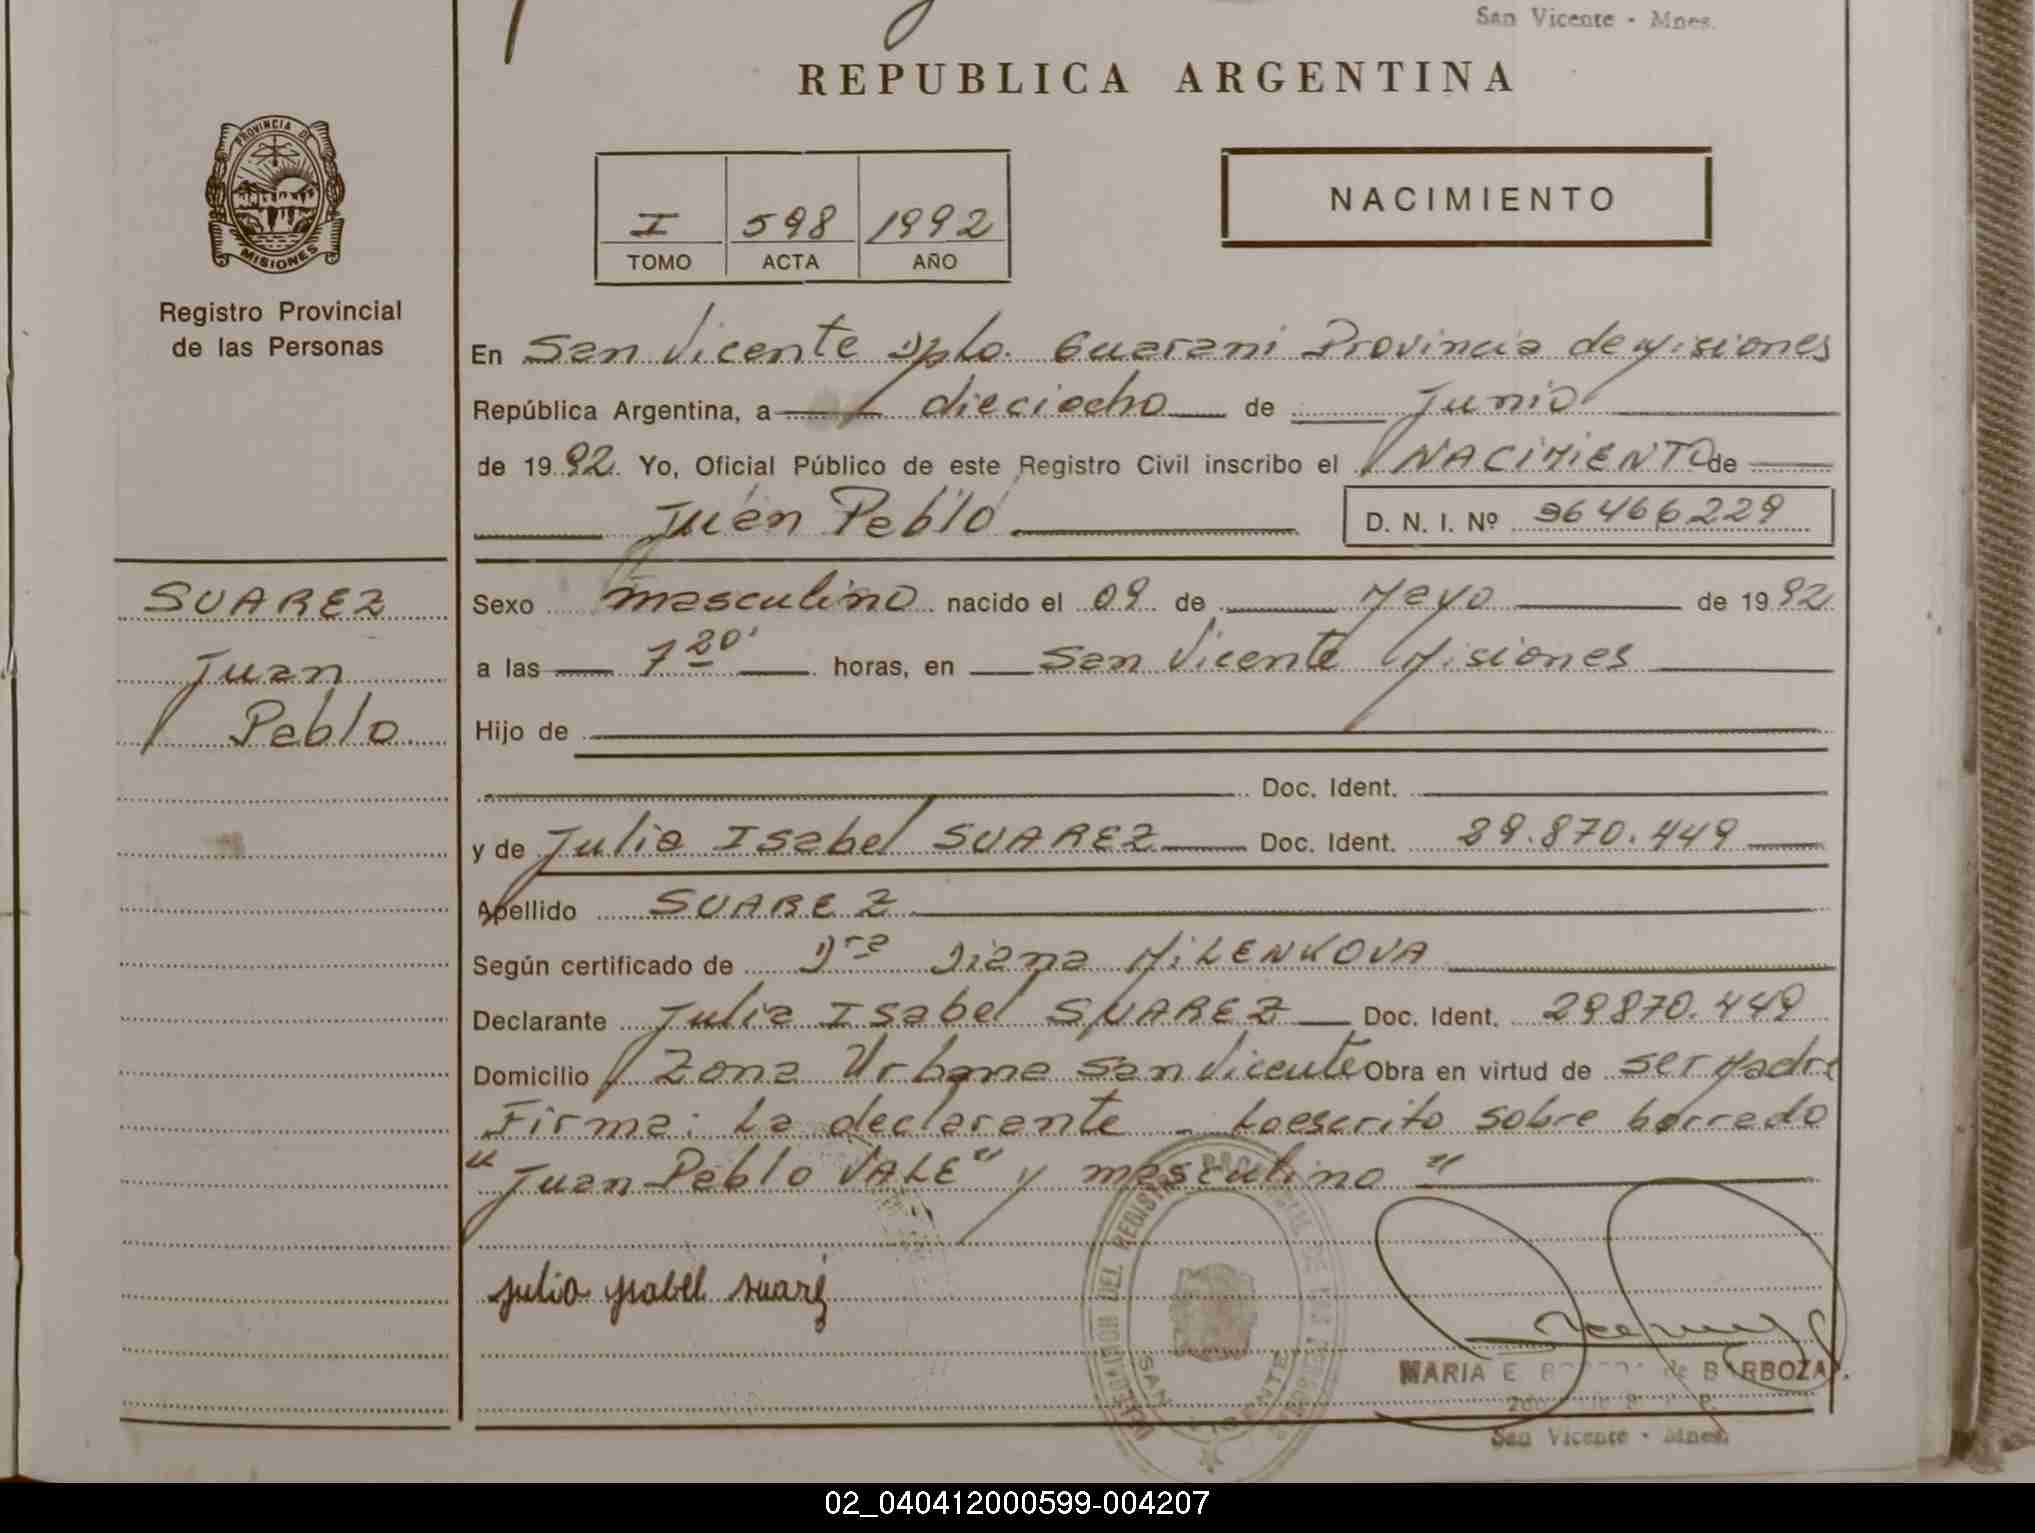 San Vicente - Mnes.
REPUBLICA ARGENTINA
PROVINCIA DE
MISIONES
Registro Provincial
de las Personas
I 598 1992
TOMO ACTA AÑO
NACIMIENTO
En San Vicente Dpto. Guarani Provincia de Misiones
República Argentina, a dieciocho de Junio
de 1992 Yo, Oficial Público de este Registro Civil inscribo el NACIMIENTO de
Juan Pablo D. N. I. Nº 36466229
SUAREZ
Juan
Pablo
Sexo masculino nacido el 09 de Mayo de 1992
a las 7 20' horas, en San Vicente Misiones
Hijo de
Doc. Ident.
y de Julia Isabel SUAREZ Doc. Ident. 29.870.449
Apellido SUAREZ
Según certificado de Dra Diana MILENKOVA
Declarante Julia Isabel SUAREZ Doc. Ident. 29870.449
Domicilio Zona Urbana San Vicente Obra en virtud de ser Madre
Firma: La declarante - Lo escrito sobre borrado
"Juan Pablo VALE" y masculino "
julia ysabel suarez
SAN VICENTE
MARIA E. de BARBOZA
San Vicente - Mnes.
02_040412000599-004207